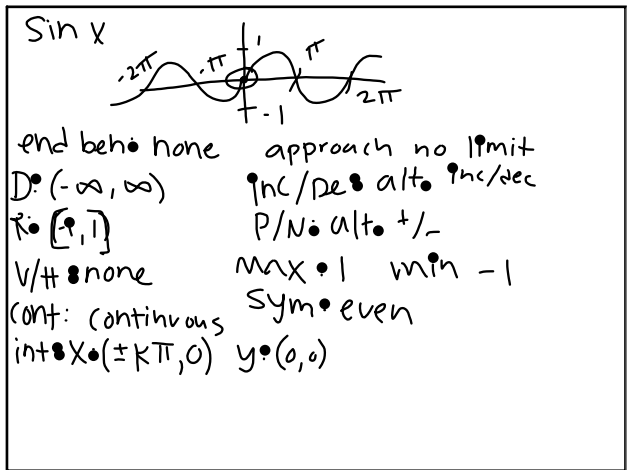 Sin x
-2π -π 1 π
-1 2π
end beh: none approach no limit
D: (-∞, ∞) inc/De: alt. inc/dec
R: [-1, 1] P/N: alt. +/-
V/H: none max: 1 min -1
cont: continuous sym: even
int: x: (±kπ, 0) y: (0,0)